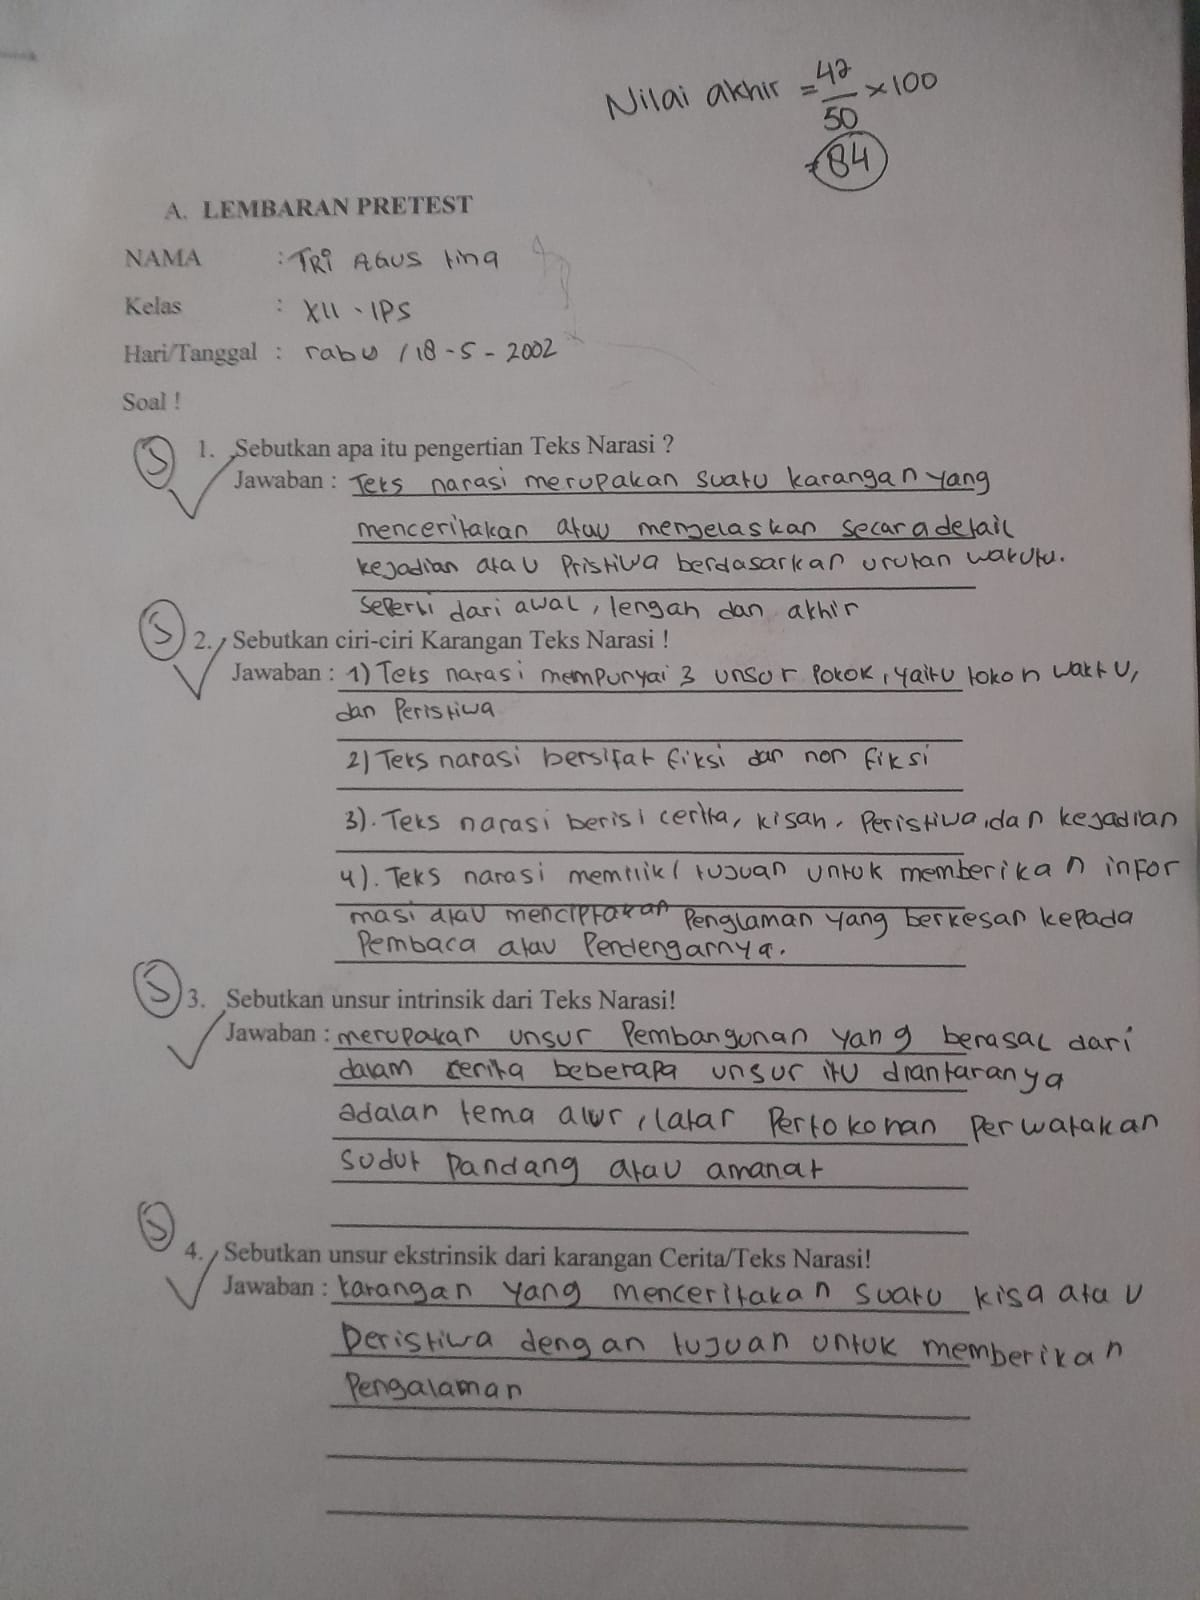 Nilai akhir = 42/50 × 100
= 84
A. LEMBARAN PRETEST
NAMA : TRi AGUS tina
Kelas : XII - IPS
Hari/Tanggal : rabu / 18 - 5 - 2002
Soal !
5 1. Sebutkan apa itu pengertian Teks Narasi ?
Jawaban : Teks narasi merupakan suatu karangan yang
menceritakan atau menjelaskan secara detail
kejadian atau Pristiwa berdasarkan urutan wakutu.
seperti dari awal, tengah dan akhir
5 2. Sebutkan ciri-ciri Karangan Teks Narasi !
Jawaban : 1) Teks narasi mempunyai 3 unsur Pokok, yaitu tokoh waktu,
dan Peristiwa
2) Teks narasi bersifat fiksi dan non fiksi
3). Teks narasi berisi cerita, kisah, Peristiwa, dan kejadian
4). Teks narasi memiliki tujuan untuk memberikan infor
masi atau menciptakan Penglaman yang berkesan kepada
Pembaca atau Pendengarnya.
5 3. Sebutkan unsur intrinsik dari Teks Narasi!
Jawaban : merupakan unsur Pembangunan yang berasal dari
dalam cerita beberapa unsur itu diantaranya
adalah tema alur, latar Pertokohan Perwatakan
sudut Pandang atau amanat
5 4. Sebutkan unsur ekstrinsik dari karangan Cerita/Teks Narasi!
Jawaban : karangan yang menceritakan suatu kisa atau
Peristiwa dengan tujuan untuk memberikan
Pengalaman